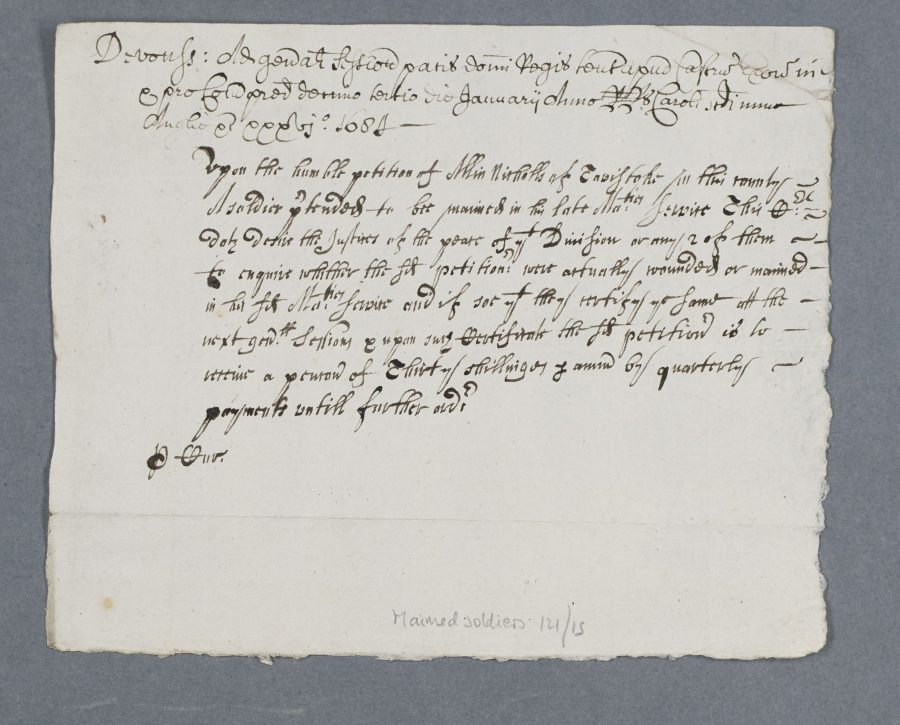 Devonss: Ad gen̄al Session pacis domi Regis tent apud Castrū Exon in
& pro Com pred decimo tertio die Januarij Anno RRs Caroli scdi nunc
Anglie &c xxxvjo. 1684
Vpon the humble petition of Allin Nicholls of Tavistoke in this county
A soldier p'tended to bee maimed in his late Maties Service This Court
doth desire the Justices of the peace of yt Division or any 2 of them
to enquire whether the sd petitionr were actually wounded or maimed
in his sd Maties Service and if soe yt they certify ye same att the
next genll Sessions & upon such Certificate the sd petitionr is to
receive a pencon of Thirty shillinges p annu by quarterly
payments untill further ordr
p Cur
Maimed soldiers 121/15